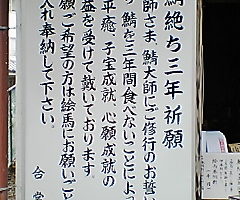 鯖絶ち三年祈願
師さま 鯖大師にご修行のお誓い
鯖を三年間食べないことによっ
平癒、子宝成就、心願成就の
益を受けて戴いております
願ご希望の方は絵馬にお願いごと
入れ奉納して下さい。
合堂